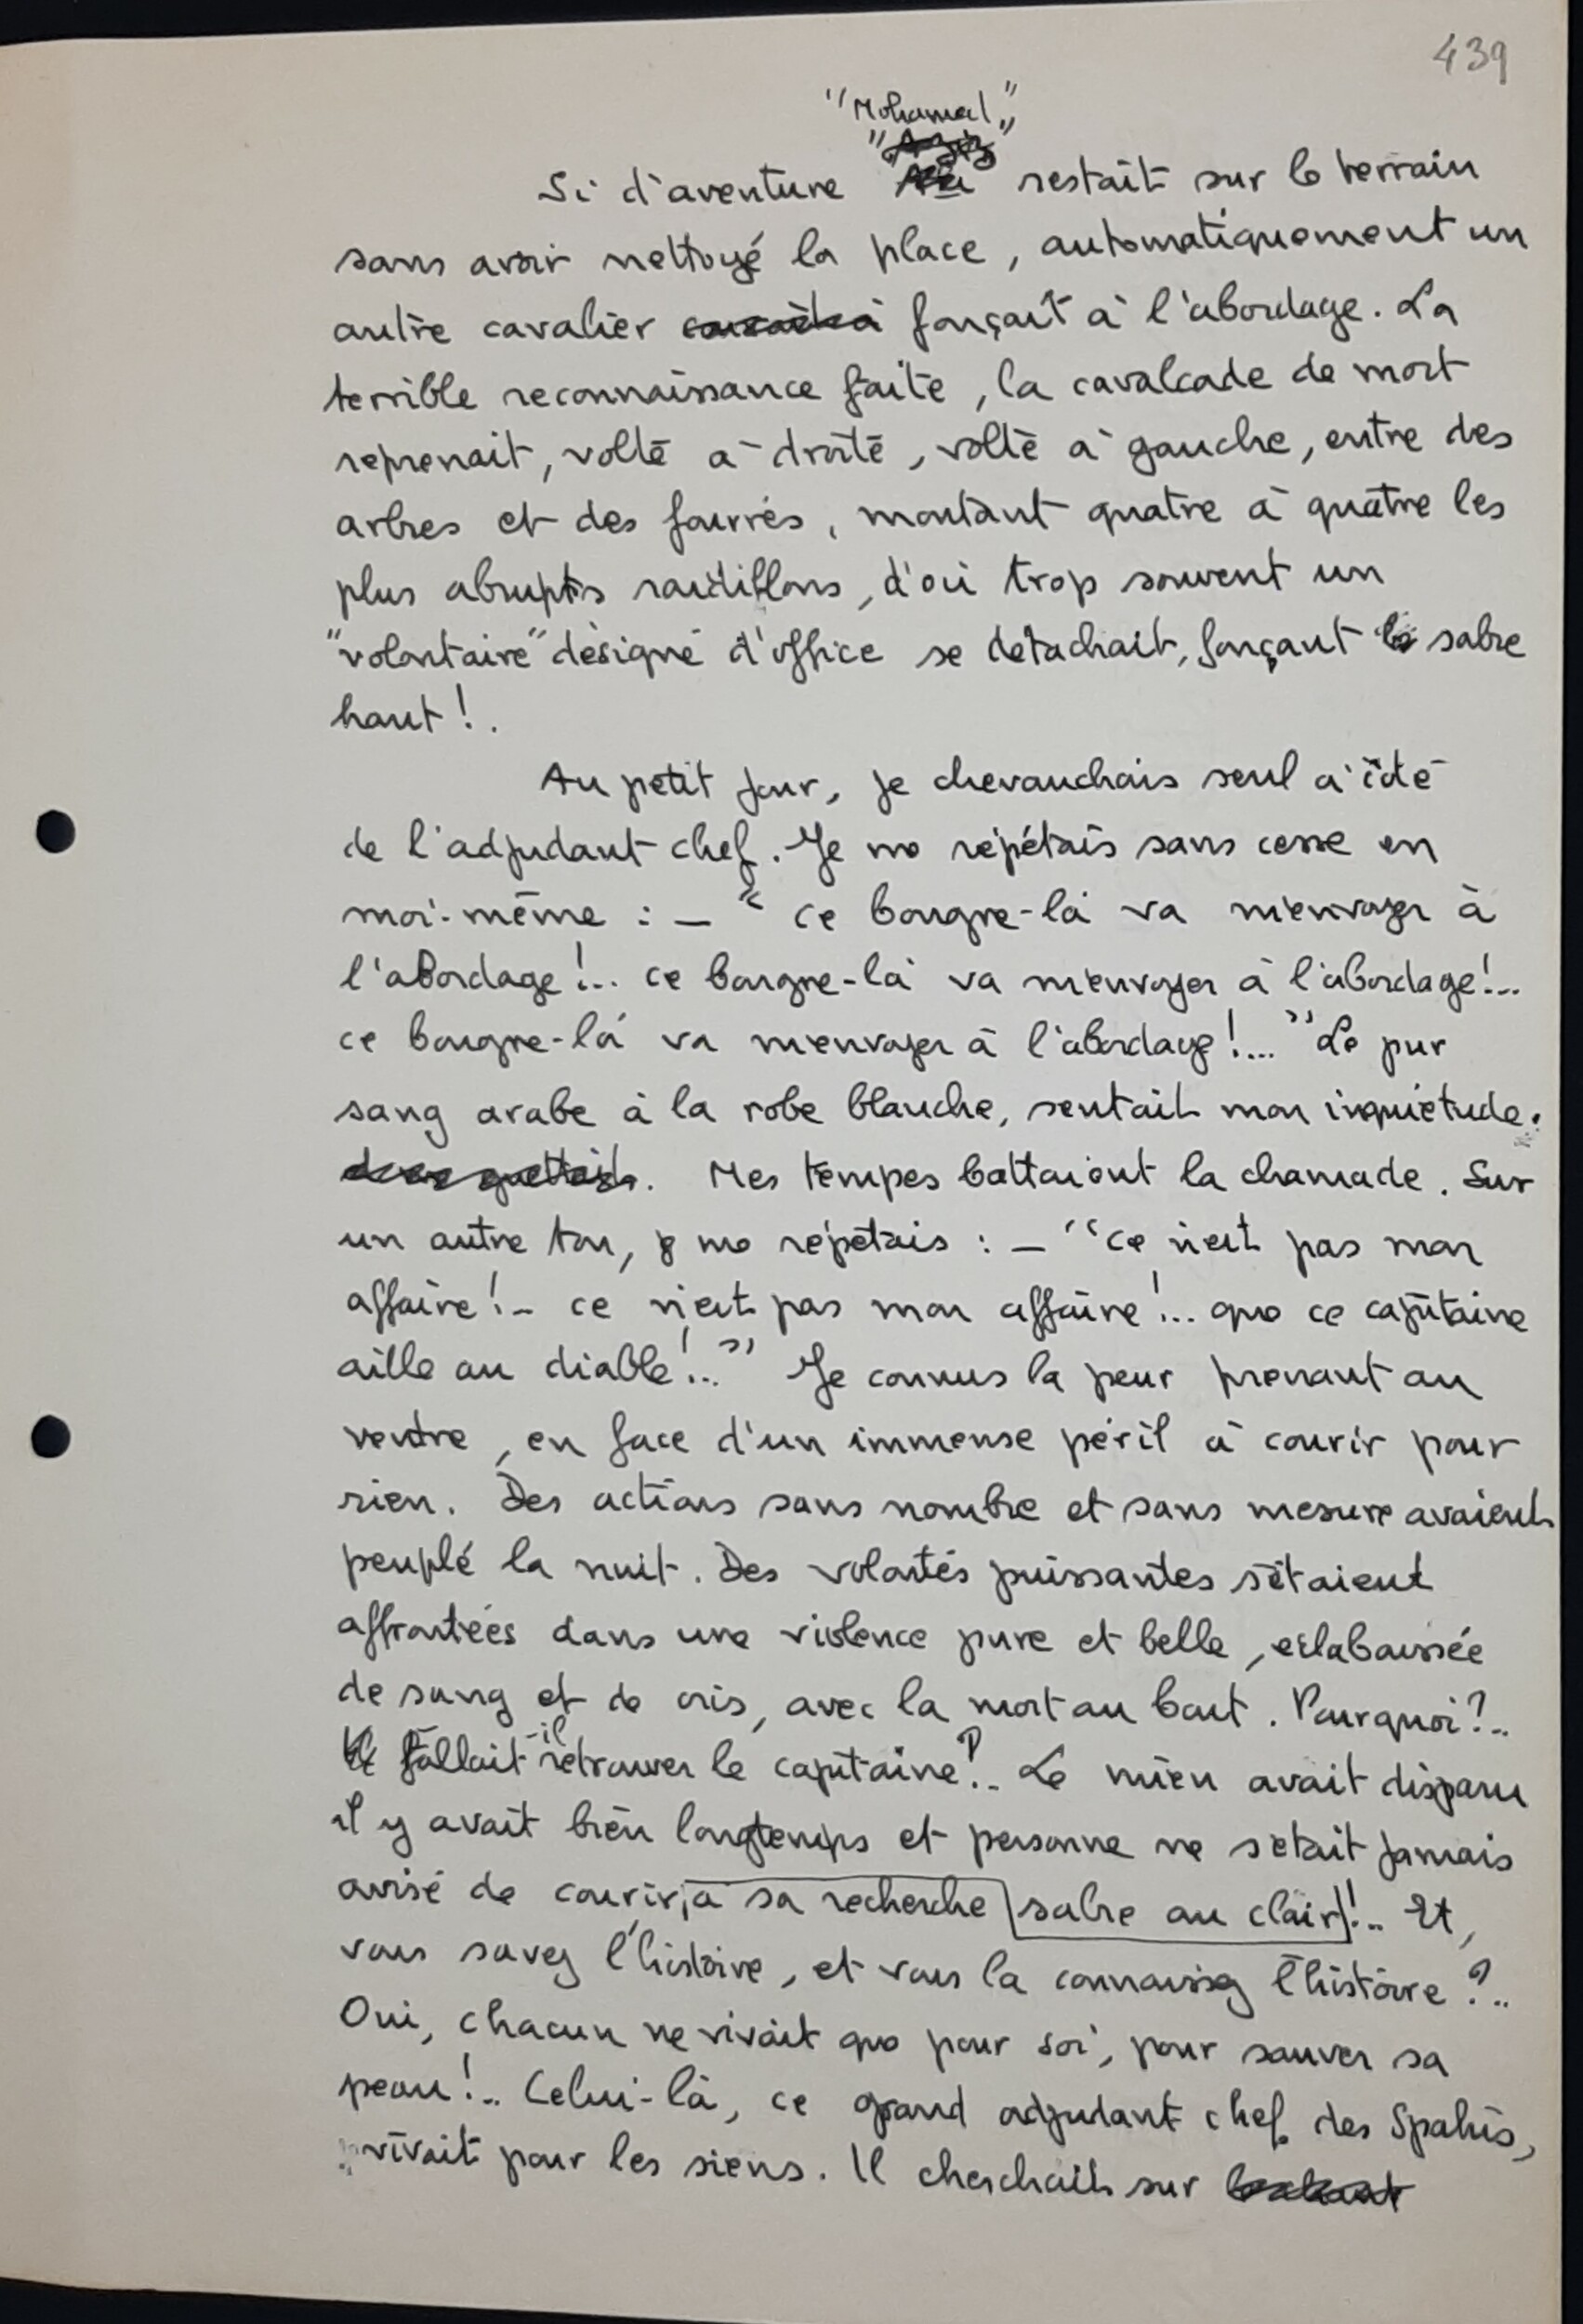 439
"Mohamed"
"Aziz"
Si d'aventure Ali restait sur le terrain
sans avoir nettoyé la place, automatiquement un
autre cavalier fonçait à l'abordage. La
terrible reconnaissance faite, la cavalcade de mort
reprenait, volte à droite, volte à gauche, entre des
arbres et des fourrés, montant quatre à quatre les
plus abrupts raidillons, d'où trop souvent un
"volontaire" désigné d'office se détachait, fonçant le sabre
haut!.
Au petit jour, je chevauchais seul à côté
de l'adjudant chef. Je me répétais sans cesse en
moi-même : — " ce bougre-là va m'envoyer à
l'abordage!... ce bougre-là va m'envoyer à l'abordage!...
ce bougre-là va m'envoyer à l'abordage!... " Le pur
sang arabe à la robe blanche, sentait mon inquiétude.
Mes tempes battaient la chamade. Sur
un autre ton, je me répétais : — "ce n'est pas mon
affaire!.. ce n'est pas mon affaire!... que ce capitaine
aille au diable!..." Je connus la peur prenant au
ventre, en face d'un immense péril à courir pour
rien. Des actions sans nombre et sans mesure avaient
peuplé la nuit. Des volontés puissantes s'étaient
affrontées dans une violence pure et belle, éclaboussée
de sang et de cris, avec la mort au bout. Pourquoi?..
fallait-il retrouver le capitaine?.. Le mien avait disparu
il y avait bien longtemps et personne ne s'était jamais
avisé de courir, à sa recherche sabre au clair!.. Et,
vous savez l'histoire, et vous la connaissez l'histoire?..
Oui, chacun ne vivait que pour soi, pour sauver sa
peau!.. Celui-là, ce grand adjudant chef des Spahis,
vivait pour les siens. Il cherchait sur